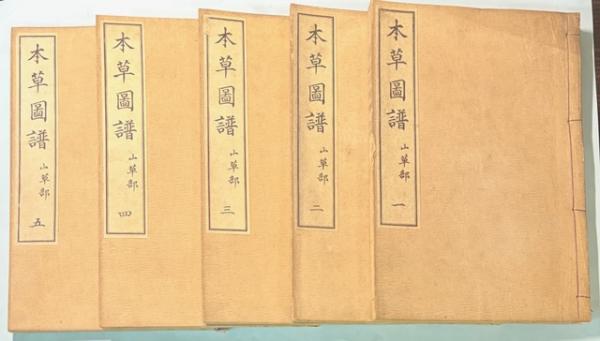 本草圖譜 山草部 一
本草圖譜 山草部 二
本草圖譜 山草部 三
本草圖譜 山草部 四
本草圖譜 山草部 五